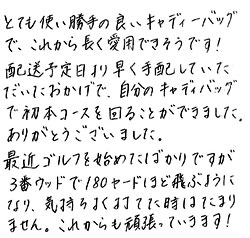 とても使い勝手の良いキャディーバッグ
で、これから長く愛用できそうです!
配送予定日より早く手配していた
だいたおかげで、自分のキャディバッグ
で初本コースを回ることができました。
ありがとうございました。
最近ゴルフを始めたばかりですが
3番ウッドで180ヤードほど飛ぶように
なり、気持ちよく打てた時はたまり
ません。これからも頑張っていきます!